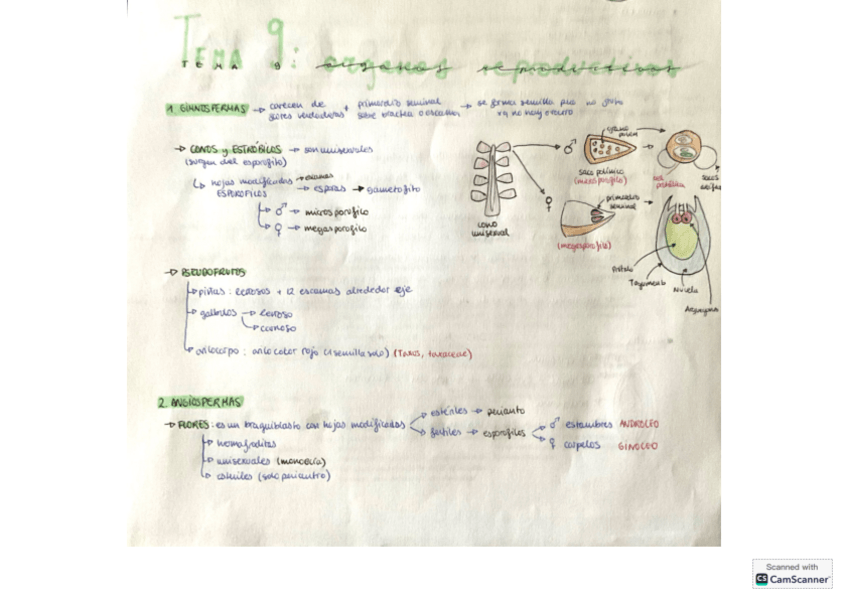 TEMA 9: organos reproductivos
1. GIMNOSPERMAS → carecen de flores verdaderas + primordio seminal sobre bractea o escama → se forma semilla pero no fruto ya no hay ovario
→ CONOS y ESTRÓBILOS → son unisexuales
hojas modificadas → escamas
ESPOROFILOS → esporas → gametofito
♂ → microsporofico
♀ → megasporofico
cono unisexual
♂
saco polínico
(microsporofilo)
♀
primordio seminal
(megasporofilo)
Tegumento
Nucela
Arquegonios
→ PSEUDOFRUTOS
piñas: leñosos + 12 escamas alrededor eje
galbulos → leñoso
→ carnoso
arilocarpo: arilo color rojo (1 semilla solo) (Taxus, taxaceae)
2. ANGIOSPERMAS
→ FLORES: es un braquiblasto con hojas modificadas
esteriles → perianto
fertiles → esporofilos
♂ estambres ANDROCEO
♀ carpelos GINOCEO
hermafroditas
unisexuales (monoecia)
esteriles (solo periantro)
Scanned with
CS CamScanner